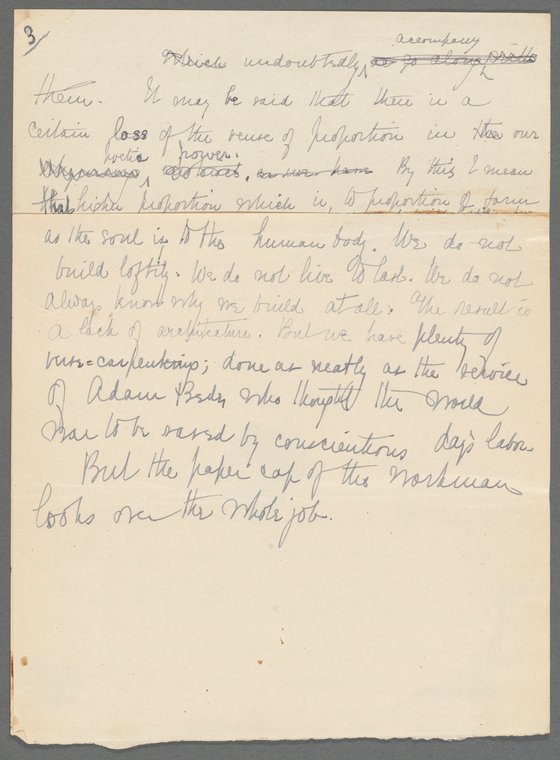 3/
accompany
Which undoubtedly ^ or go along with
them. It may be said that there is a
certain loss of the sense of proportion in the our
poetic power.
By this I mean
that higher proportion which is, to proportion of form
as the soul is to the human body. We do not
build loftily. We do not live to last. We do not
always know why we build at all. The result is
a lack of architecture. But we have plenty of
verse=carpentering; done as neatly as the service
of Adam Bede, who thought the world
was to be saved by conscientious day's labor
But the paper cap of the workman
looks over the whole job.